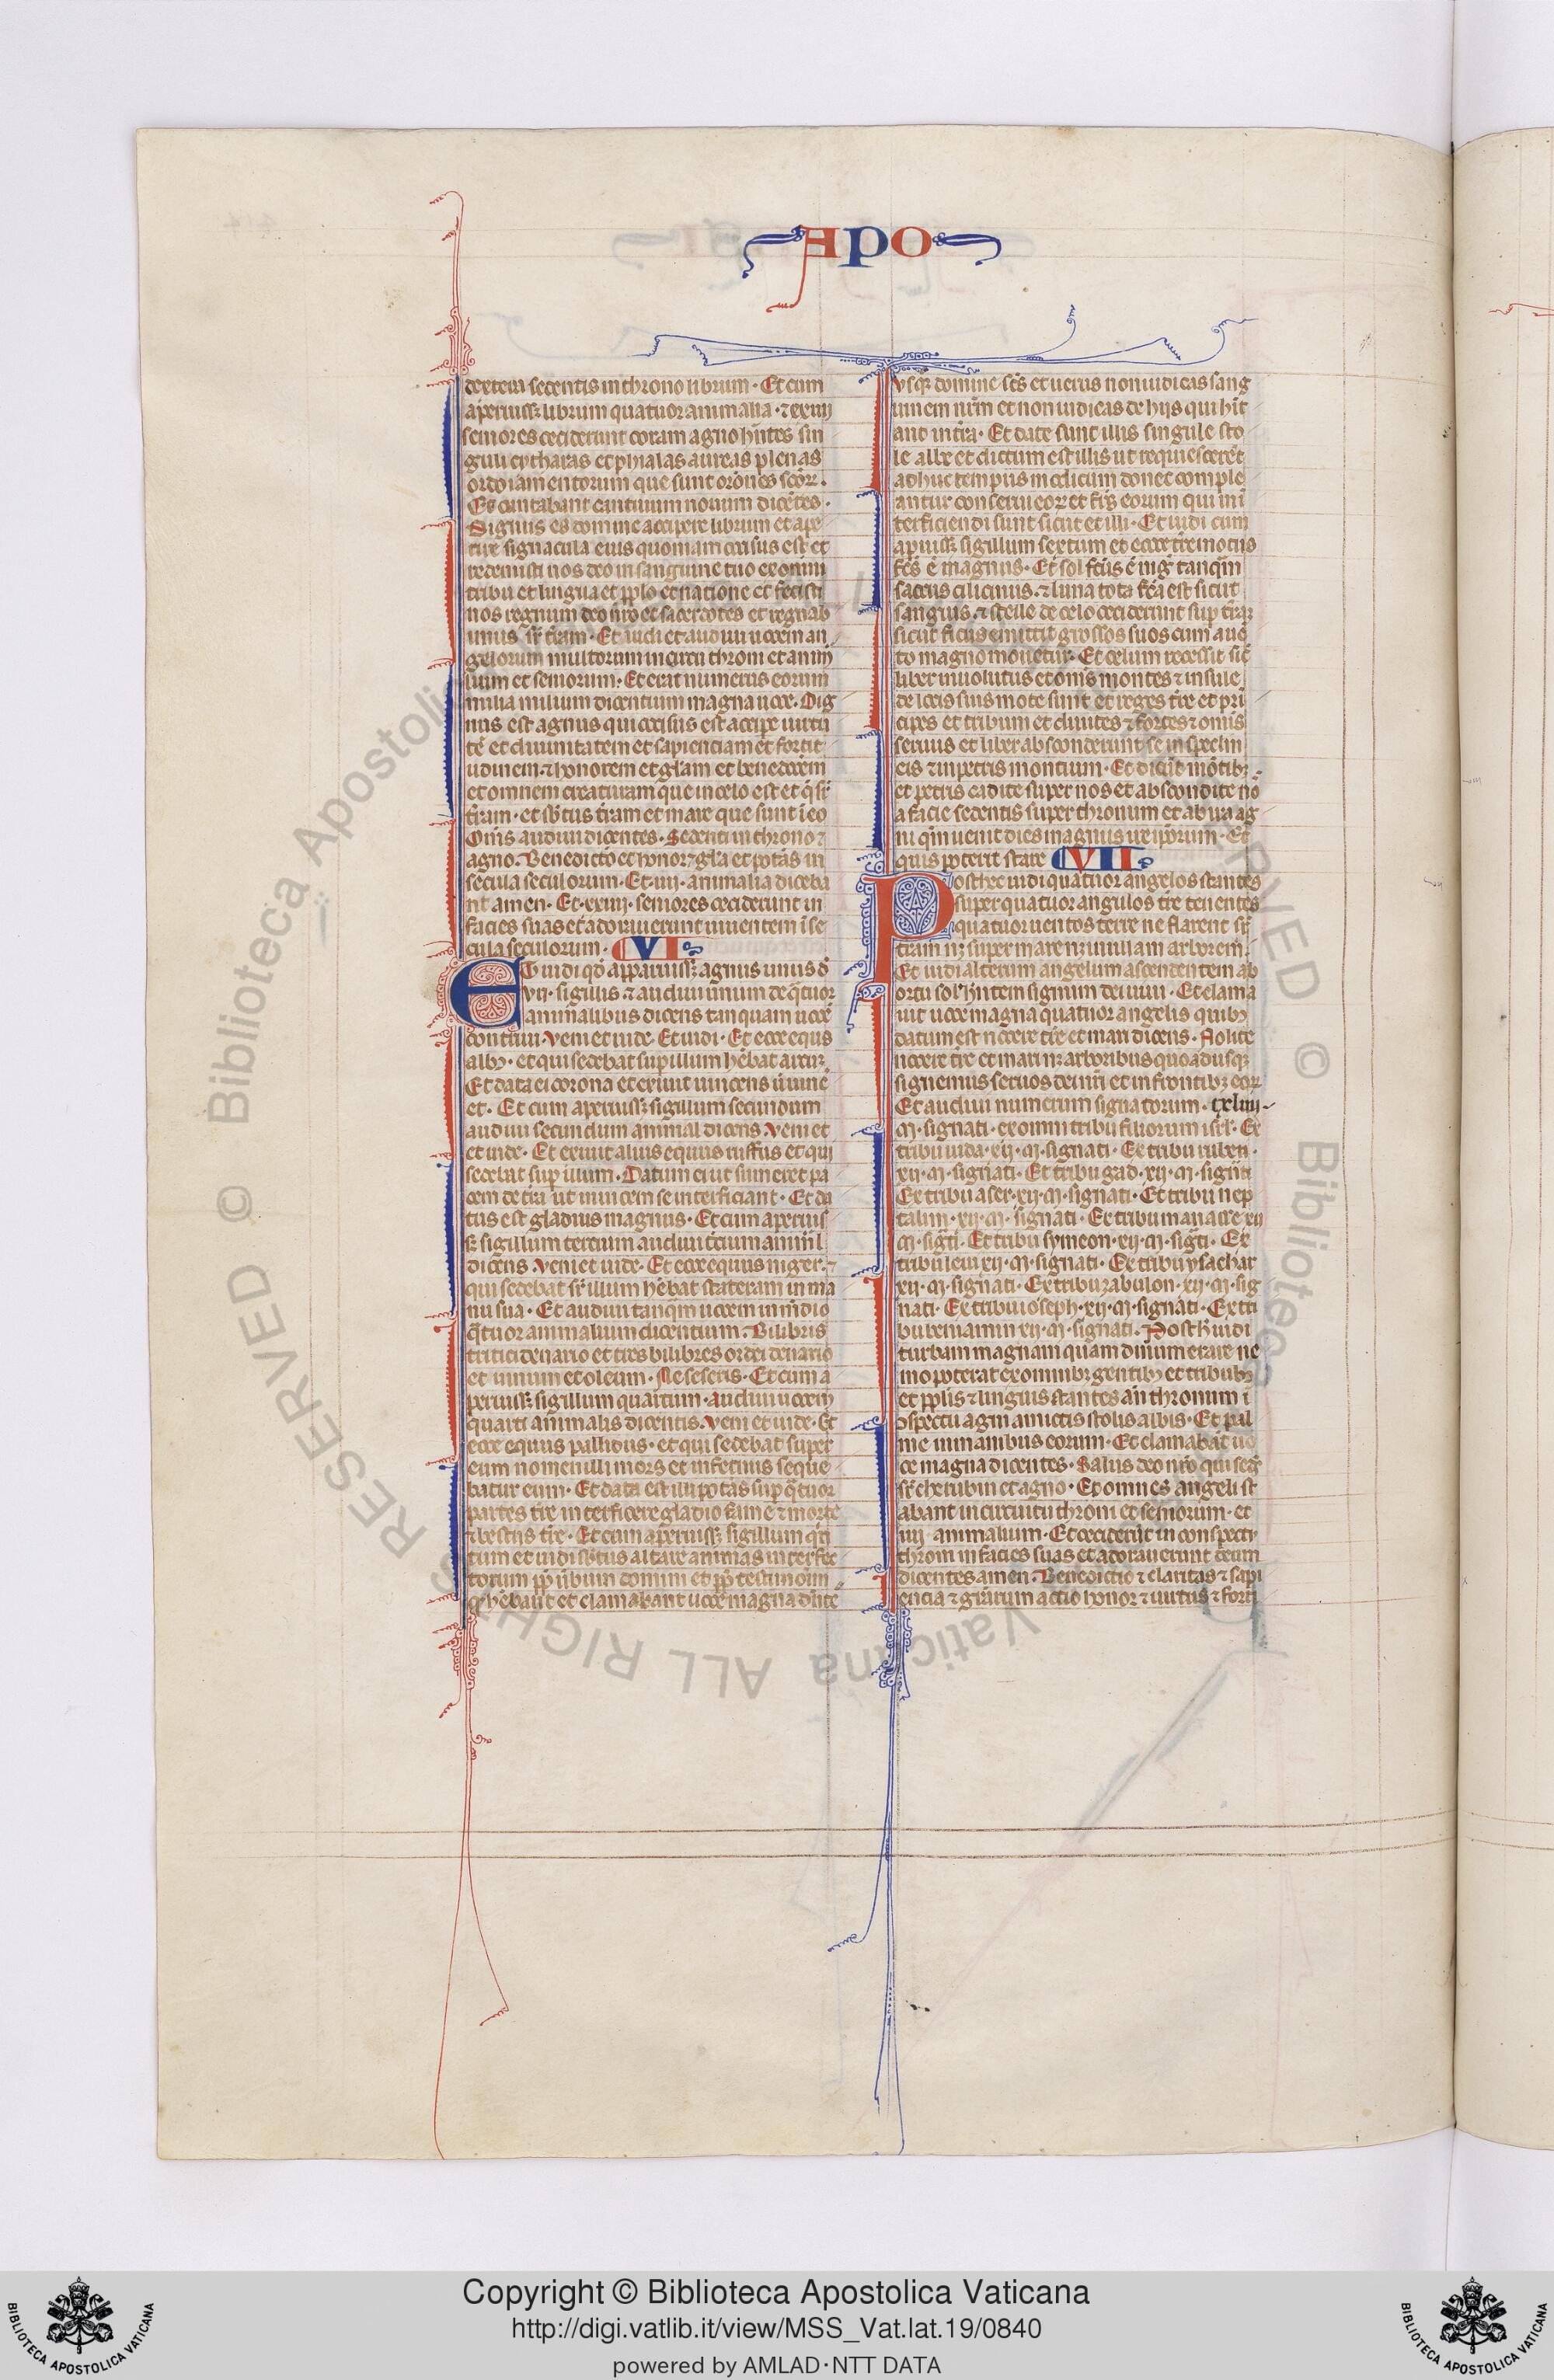 APO
dextera sedentis in throno librum · Et cum
aperuiss; librum quatuor animalia · ⁊ xxiiij
seniores ceciderunt coram agno hñtes sin
guli cytharas et phialas aureas plenas
odoramentorum que sunt orõnes scõꝝ ·
Et cantabant canticum nouum dicẽtes ·
Dignus es domine accipere librum et ape
rire signacula eius quoniam occisus est et
redemisti nos deo in sanguine tuo ex omni
tribu et lingua et pplo et natione et fecisti
nos regnum deo nr̃o et sacerdotes et regnab
imus sr̃ tr̃am · Et uidi et audiui uocem an
gelorum multorum in circu throni et anim
lium et seniorum · Et erat numerus eorum
milia milium dicentium magna uoce · Dig
nus est agnus qui occisus est accipe uirtu
tẽ et diuinitatem et sapienciam et fortit
udinem · ⁊ honorem et gl̃am et benedcõem
et omnem creaturam que in celo est et q̃ sr̃
tr̃am · et sb̃tus tr̃am et mare que sunt ĩ eo
Om̃s audiui dicentes · Sedenti in throno ⁊
agno · Benedictõ et honor ⁊ gl̃a et potãs in
secula seculorum · Et · iiij · animalia diceba
nt amen · Et · xxiiij · seniores ceciderunt in
facies suas et adorauerunt uiuentem ĩ se
cula seculorum · VI
ET uidi qõ apparuiss; agnus unus õ
vij · sigillis ⁊ audiui unum de q̃tuor
animalibus dicens tanquam uocẽ
tonitrui · Veni et uide · Et uidi · Et ecce equs
alb; · et qui sedebat sup illum hẽbat arcũ ·
Et data ei corona et exiuit uincens ũ uinc̃
et · Et cum aperuiss; sigillum secundum
audiui secundum animal dicens · Veni et
et uide · Et exiuit alius equus ruffus et qui
sedebat sup illum · Datum ei ut sumeret pa
cem de tr̃a ut inuicem se interficiant · Et da
tus est gladius magnus · Et cum aperuis
s; sigillum tercium audiui t̃cium anim̃l
dicens · Veni et uide · Et ecce equus niger · ⁊
qui sedebat sr̃ illum hẽbat stateram in ma
nu sua · Et audiui tanq̃m uocem in m̃dio
q̃tuor animalium dicentium · Bilibris
tritici denario et tres bilibres ordei denario
et uinum et oleum · Ne leseris · Et cum a
peruiss; sigillum quartum · audiui uocem
quarti animalis dicentis · Veni et uide · Et
ecce equus pallidus · et qui sedebat super
eum nomen illi mors et infernus seque
batur eum · Et data est illi potãs sup q̃tuor
partes tr̃e interficere gladio fame ⁊ morte
⁊ bestiis tr̃e · Et cum aperuiss; sigillum q̃n
tum et uidi sb̃tus altare animas interfec
torum pp ũbum domini et pp testimoniũ
q̃ hẽbant et clamabant uoce magna dñte
Vsq; domine scs̃ et uerus non iudicas sang
uinem nr̃m et non iudicas de hijs qui hĩt
ant in tr̃a · Et date sunt illis singule sto
le albe et dictum est illis ut requiescerẽt
adhuc tempus modicum donec comple
antur conserui eoꝝ et fr̃s eorum qui ĩnĩ
terficiendi sunt sicut et illi · Et uidi cum
apuiss; sigillum sextum et ecce tr̃emotus
fc̃s ẽ magnus · Et sol fc̃us ẽ nig̃ tanq̃m
saccus cilicinus · ⁊ luna tota fc̃a est sicut
sanguis · ⁊ stelle de celo ceciderunt sup tr̃a;
sicut ficus emittit grossos suos cum auẽ
to magno mouetur · Et celum recessit sic̃
liber inuolutus et om̃s montes ⁊ insule
de locis suis mote sunt et reges tr̃e et pri
cipes et tribum et diuites ⁊ fortes ⁊ om̃is
seruus et liber absconderunt se in spelũ
cis ⁊ in petris montium · Et dicũt mõtib;
et petris cadite super nos et abscondite no
a facie sedentis super thronum et ab ira ag
ni q̃m uenit dies magnus ire ip̃orum · Et
quis poterit stare VII
Post hec uidi quatuor angelos stantes
super quatuor angulos tr̃e tenentes
quatuor uentos terre ne flarent sr̃
tr̃am n; super mare n; in ullam arborem ·
Et uidi alterum angelum ascendentem ab
ortu sol' hñtem signum dei uiui · Et clama
uit uoce magna quatuor angelis quib;
datum est nocere tr̃e et mari dicens · Nolite
nocere tr̃e et mari n; arboribus quoadusq;
signemus seruos dei nr̃i et in frontib; eoꝝ
Et audiui numerum signatorum · cxliiij
M · signati · ex omni tribu filiorum isrl' · Ex
tribu iuda · xij · M · signati · Ex tribu ruben ·
xij · M · signati · Ex tribu gad · xij · M · signti
Ex tribu aser · xij · M · signati · Ex tribu nep
talim · xij · M · signati · Ex tribu manasse xij
M · sigti · Ex tribu symeon · xij · M · sigti · Ex
tribu leui xij · M · signati · Ex tribu ysachar
xij · M · signati · Ex tribu zabulon · xij · M · sig
nati · Ex tribu ioseph · xij · M · signati · Ex tri
bu beniamin xij · M · signati · Post h̃ uidi
turbam magnam quam dinumerare ne
mo poterat ex omnib; gentib; et tribub;
et pplis ⁊ linguis stantes an̄ thronum ĩ
ɔspectu agni amictis stolis albis · Et pal
me in manibus eorum · Et clamabãt uo
ce magna dicentes · Salus deo nr̃o qui seq̃
sr̃ cherubin et agno · Ex omnes angeli st
abant in circuitu throni et seniorum · et
iiij animalium · Et ceciderũt in conspectu
throni in facies suas et adorauerunt deum
dicentes amen · Benedictio ⁊ claritas ⁊ sapi
encia ⁊ gr̃arum actio honor ⁊ uirtus ⁊ forti
Copyright © Biblioteca Apostolica Vaticana
http://digi.vatlib.it/view/MSS_Vat.lat.19/0840
powered by AMLAD·NTT DATA